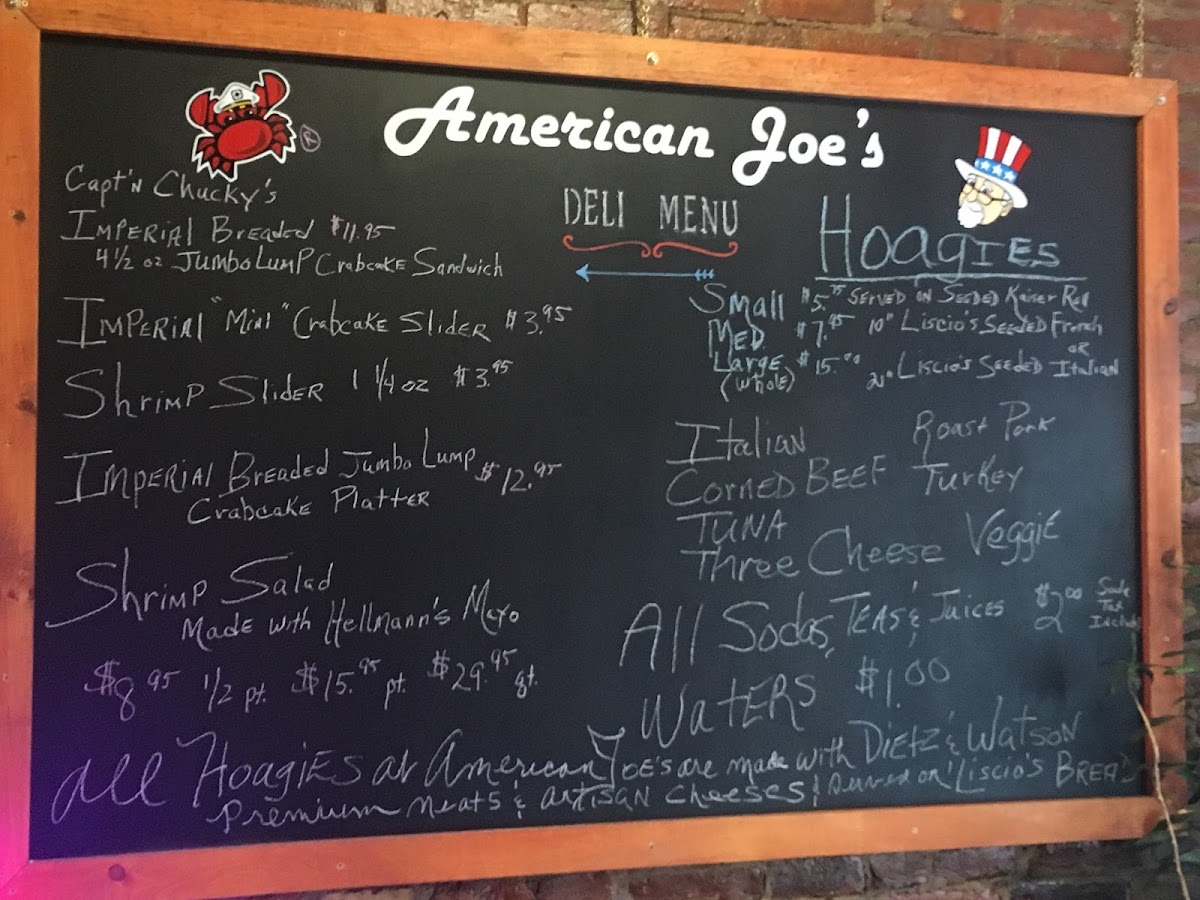 American Joe's
DELI MENU
Capt'n Chucky's
Imperial Breaded $11.95
4 1/2 oz Jumbo Lump Crabcake Sandwich
Imperial "Mini" Crabcake Slider $3.95
Shrimp Slider 1 1/4 oz $3.95
Imperial Breaded Jumbo Lump $12.95
Crabcake Platter
Shrimp Salad
Made with Hellmann's Mayo
$8.95 1/2 pt. $15.95 pt. $29.95 qt.
Hoagies
Small $5.75 Served on Seeded Kaiser Roll
Med. $7.95 10" Liscio's Seeded French
or
Large $15.00 Liscio's Seeded Italian
(whole)
Italian Roast Pork
Corned Beef Turkey
Tuna Veggie
Three Cheese
All Sodas, Teas & Juices $2.00 Soda
Tax
Included
Waters $1.00
All Hoagies at American Joe's are made with Dietz & Watson
Premium meats & artisan cheeses! Served on Liscio's Bread